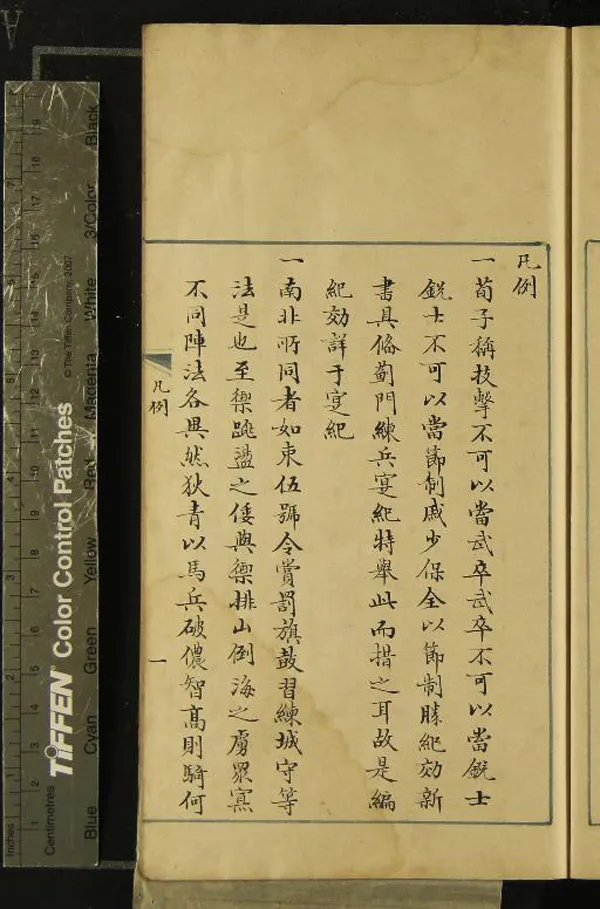 凡例
一荀子稱技擊不可以當武卒武卒不可以當銳士
銳士不可以當節制戚少保全以節制勝紀効新
書具俻薊門練兵寔紀特舉此而措之耳故是編
紀効詳于寔紀
一南北所同者如束伍號令賞罰旗鼓習練城守等
法是也至禦跳盪之倭與禦排山倒海之虜眾寡
不同陣法各異然狄青以馬兵破儂智高則騎何
凡例
一
Inches
Centimetres
TIFFEN Color Control Patches
© The Tiffen Company, 2007
Blue Cyan Green Yellow Red Magenta White 3/Color Black